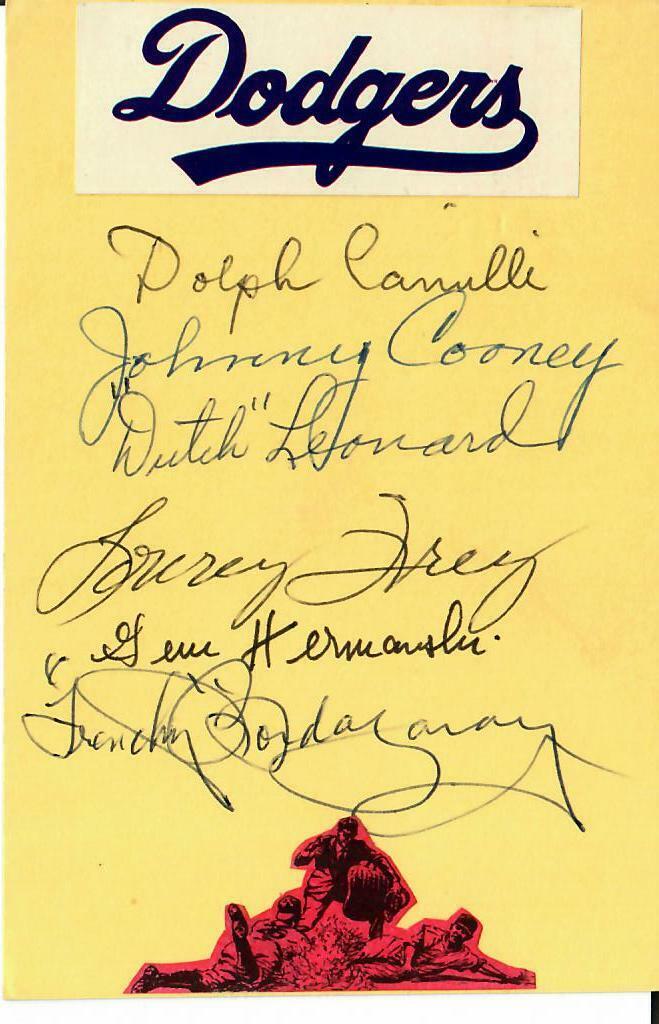 Dodgers
Dolph Camilli
Johnny Cooney
"Dutch" Leonard
Lonny Frey
Gene Hermanski.
"Frenchy" Bordagaray